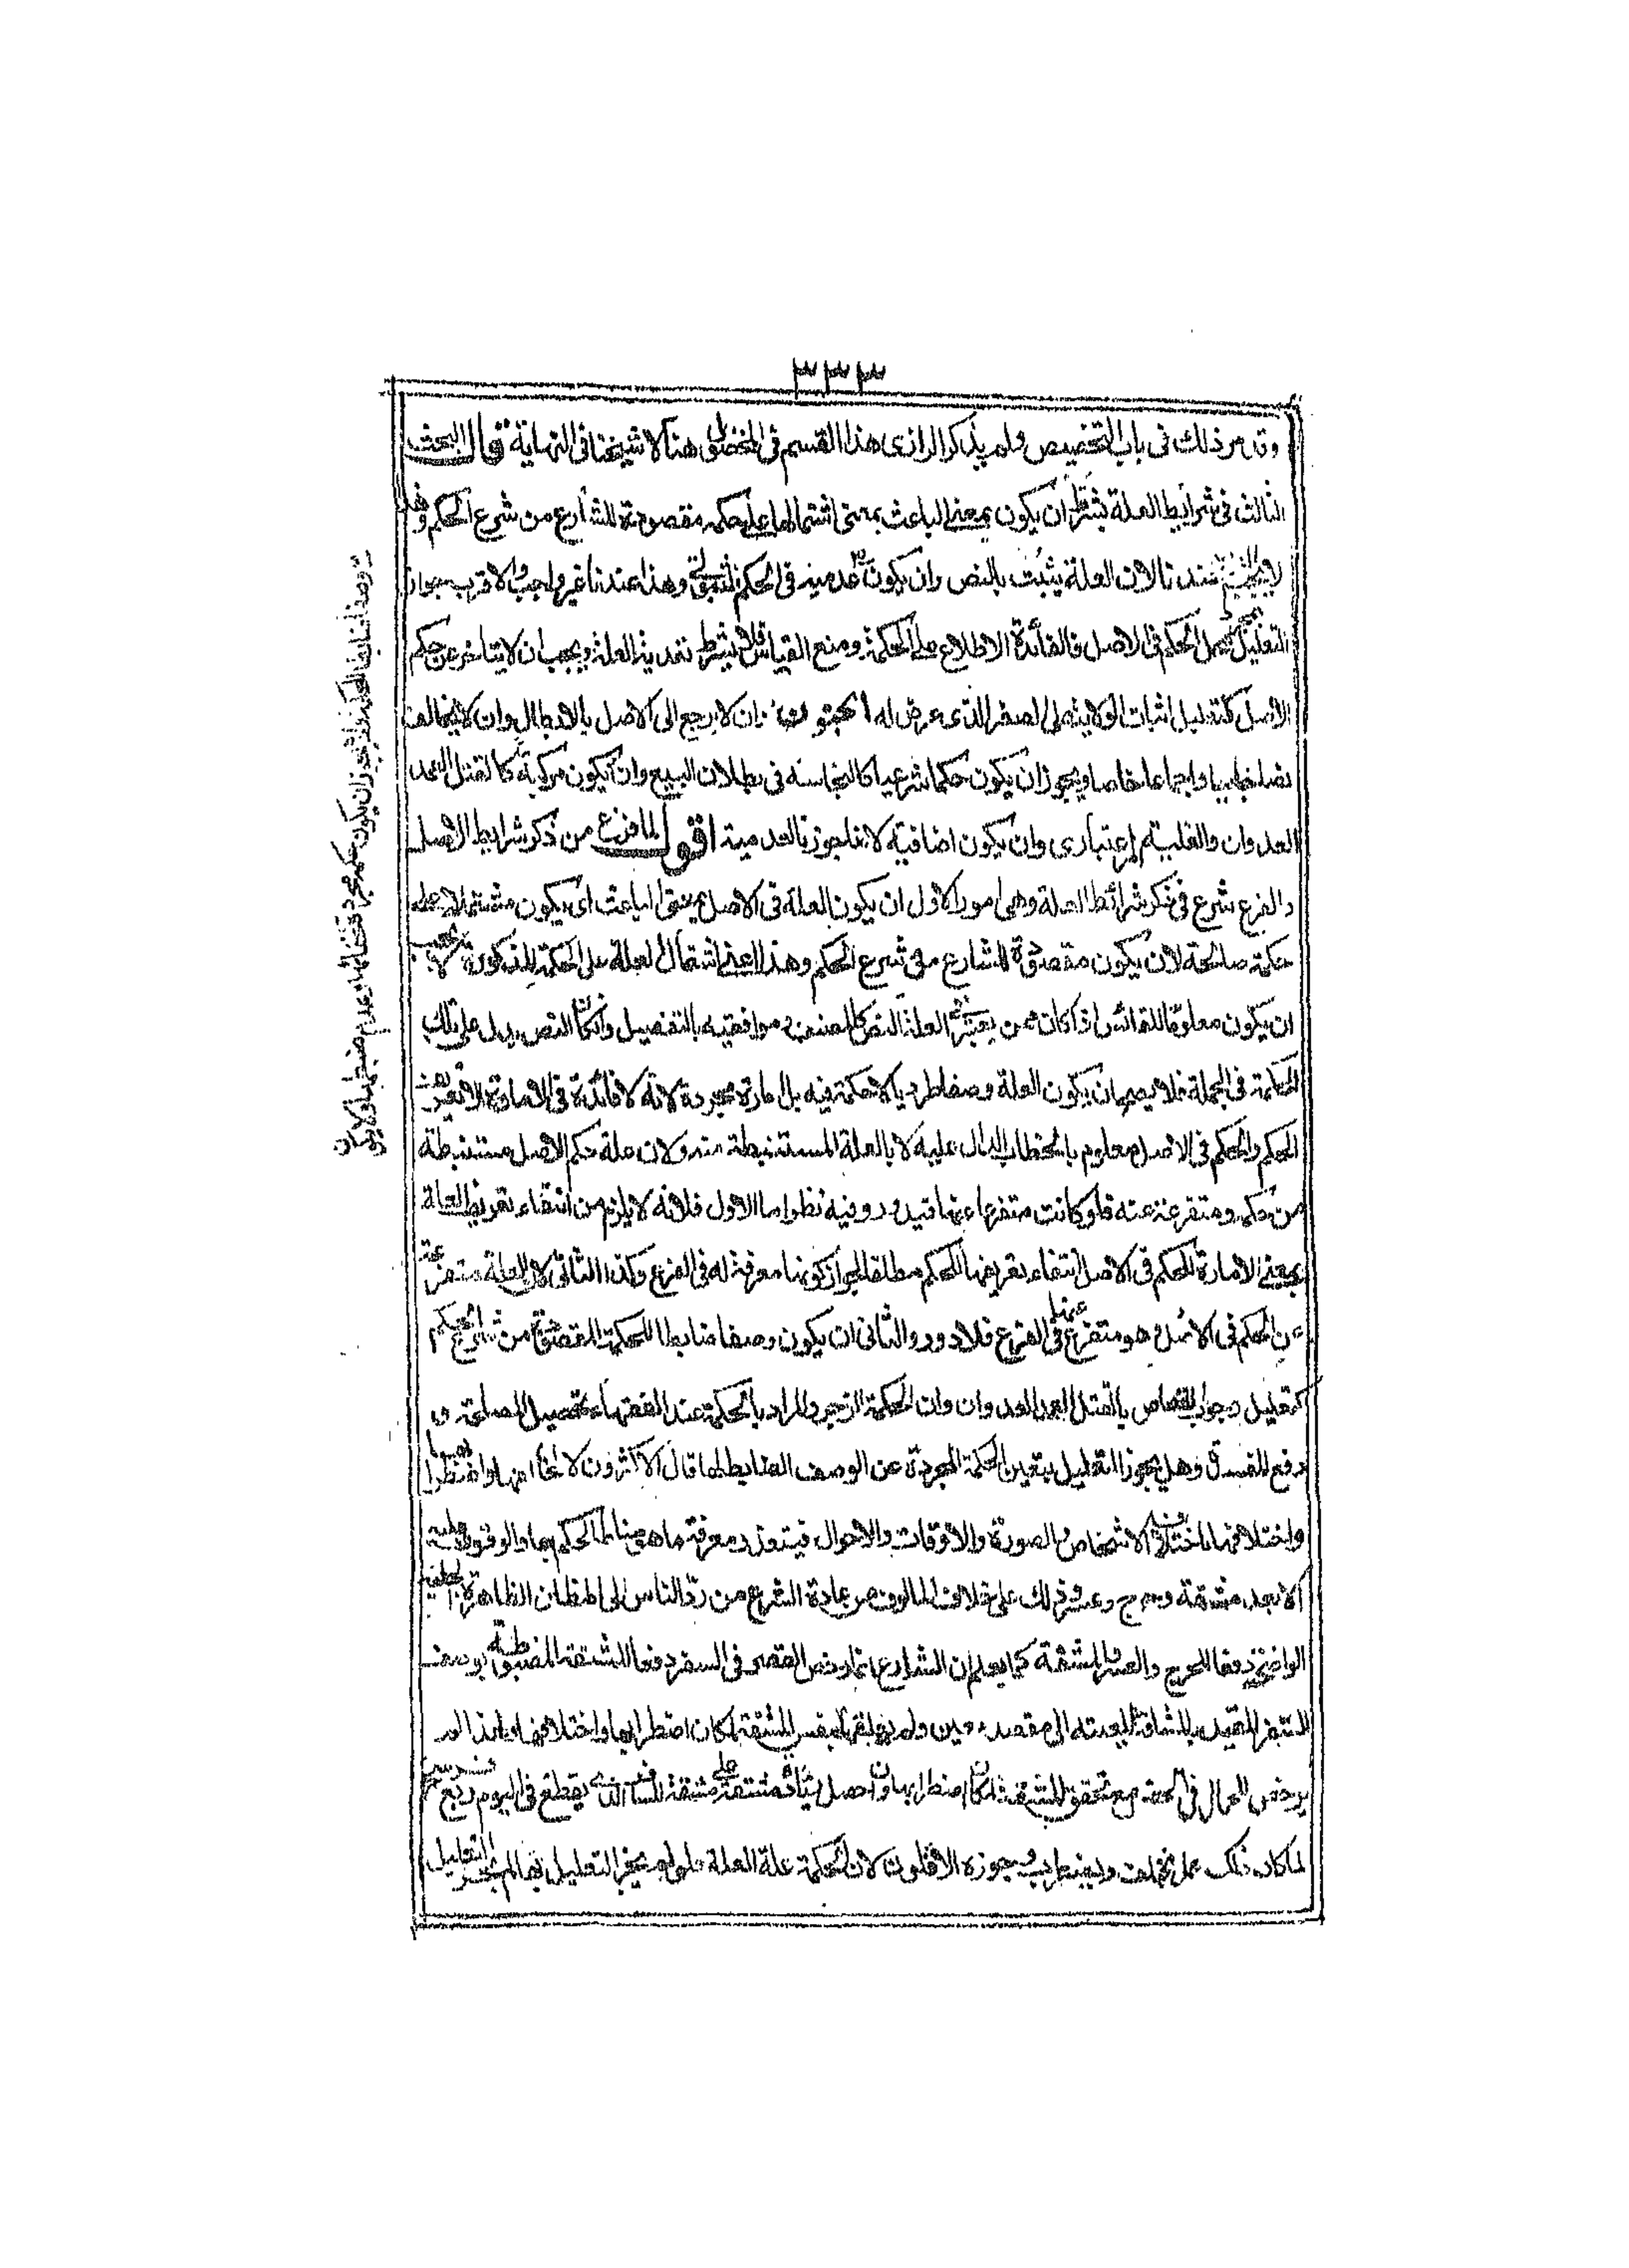 ٣٣٣
وقد مر ذلك فى باب التخصيص ولم يذكر الرازى هذا القسم فى المحصول هنا لا شيخنا فى النهاية قال البحث
الثالث فى شرايط العلة يشترط ان يكون بمعنى الباعث بمعنى اشتمالها على حكمة مقصودة للشارع من شرع الحكم وهذا
عندنا لان العلة يثبت بالنص وان يكون عدمية فى الحكم الثبوتى وهذا عندنا غير واجب والاقرب جواز
التعليل بمحل الحكم فى الاصل فالفائدة الاطلاع على الحكمة ومنع القياس فلا يشترط تعدية العلة ويجب ان لا يتاخر عن حكم
الاصل كتعليل اثبات الولاية على الصغير الذى عرض له الجنون وان لا يرجع الى الاصل بالابطال وان لا يخالف
نصا خاصا واجماعا خاصا ويجوز ان يكون حكما شرعيا كالنجاسة فى بطلان البيع وان يكون مركبة كالقتل العمد
العدوان والغلبة اعتبارى وان يكون اضافية لانا نجوز بالعدمية اقول لما فرغ من ذكر شرايط الاصل
والفرع شرع فى ذكر شرائط العلة وهى امور الاول ان يكون العلة فى الاصل بمعنى الباعث اى يكون مشتملا على
حكمة صالحة لان يكون مقصودة للشارع فى شرع الحكم وهذا المعنى اشتمال العلة على الحكمة المذكورة لا يجب
ان يكون معلوما للقائس اذا كان ممن يعتبر العلة النص كالمصنف وموافقيه بالتفصيل وان كان النص يدل على تلك
الحكمة فى الجملة فلا يصح ان يكون العلة وصفا طرديا لا حكمة فيه بل امارة مجردة لانه لا فائدة فى الامارة الا تعريف
الحكم والحكم فى الاصل معلوم بالخطاب الدال عليه لا بالعلة المستنبطة منه ولان علة حكم الاصل مستنبطة
من حكمه ومتفرعة عنه فلو كانت متفرعا عنها فيدور وفيه نظر اما الاول فلانه لا يلزم من انتفاء تعريف العلة
بمعنى الامارة للحكم فى الاصل انتفاء تعريفها للحكم مطلقا لجواز كونها معرفة له فى الفرع وكذا الثانى لان العلة متفرعة
عن الحكم فى الاصل وهو متفرع عنها فى الفرع فلا دور والثانى ان يكون وصفا ضابطا للحكمة المقصودة من شرع الحكم
كتعليل وجوب القصاص بالقتل العمد العدوان وان الحكمة الزجر والمراد بالحكمة عند الفقهاء تحصيل المصلحة و
دفع المفسدة وهل يجوز التعليل بتعين الحكمة المجردة عن الوصف الضابط لها قال الاكثرون لا لخفائها واضطرابها
واختلافها باختلاف الاشخاص والصورة والاوقات والاحوال فيتعذر معرفة ما هو مناط الحكم بها والوقوف عليه
الا بعد مشقة وحرج وعسر وذلك على خلاف المالوف من عادة الشرع من رد الناس الى المظان الظاهرة الجلية
الواضحة دفعا للحرج والعسر والمشقة كما يعلم ان الشارع انما رخص القصر فى السفر دفعا للمشقة المضبوطة بوصف
السفر المقيد بالمسافة البعيدة الى مقصد معين ولم يعلقها بنفس المشقة لمكان اضطرابها واختلافها ولهذا لم
يرخص الحمال فى الحضر مع تحقق المشقة لمكان اضطرابها وان حصل مشقته على مشقة المسافر الذى يقطع فى اليوم ربع فرسخ
لما كان ذلك مما يختلف ويضطرب وجوزه الاقلون لان الحكمة علة العلة فلو لم يجز التعليل بها لم يجز التعليل
وان يكون حكمة مجردة لخفائها وعدم ضبطها ولا يكون